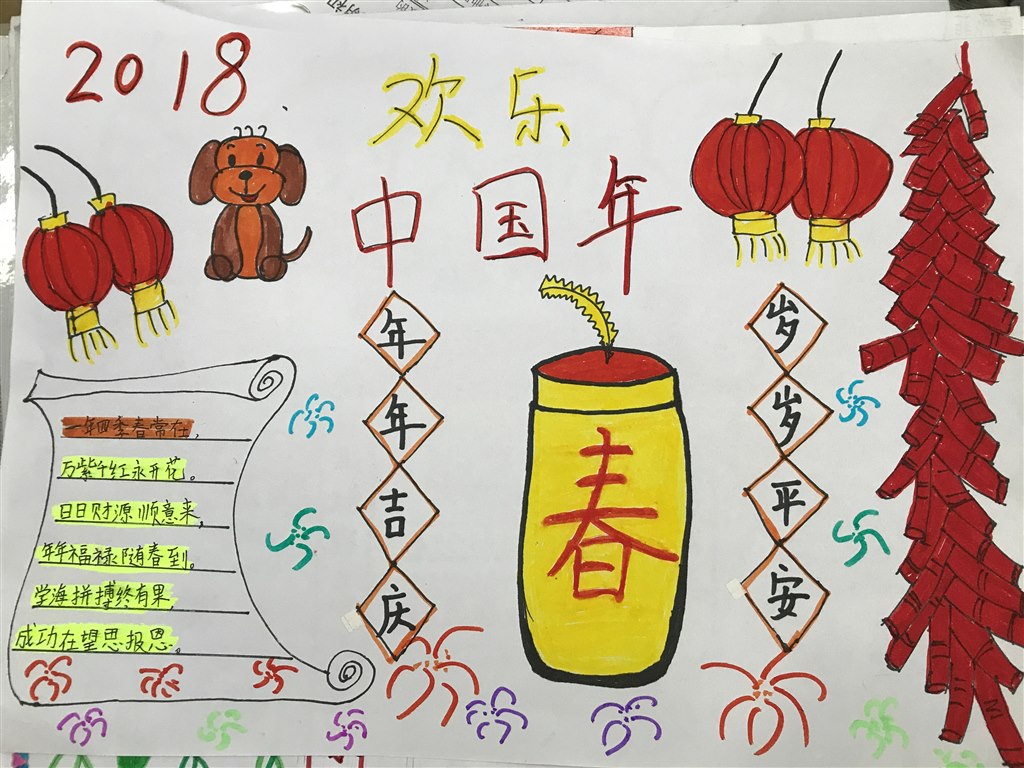 2018
欢乐
中国年
年年吉庆
春
岁岁平安
一年四季春常在,
万紫千红永开花。
日日财源顺意来,
年年福禄随春到。
学海拼搏终有果
成功在望思报恩。